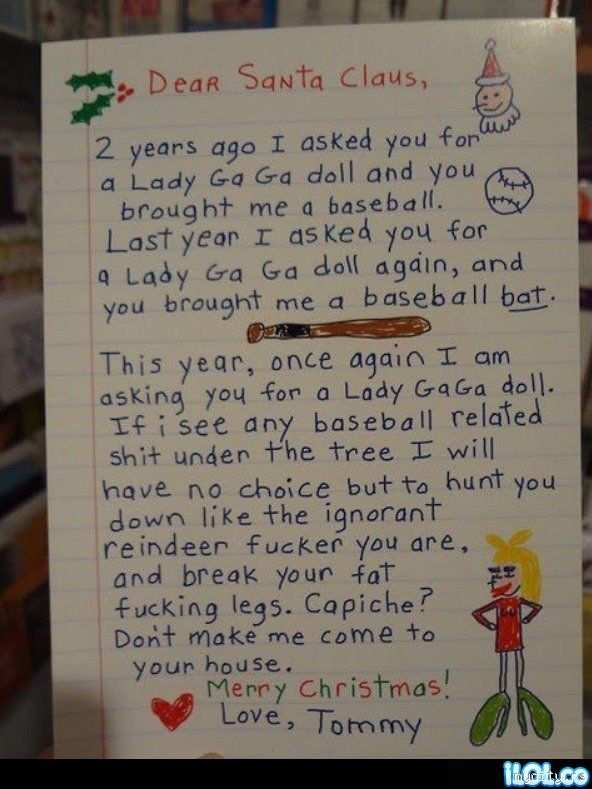 Dear Santa Claus,
2 years ago I asked you for
a Lady Ga Ga doll and you
brought me a baseball.
Last year I asked you for
a Lady Ga Ga doll again, and
you brought me a baseball bat.
This year, once again I am
asking you for a Lady GaGa doll.
If i see any baseball related
shit under the tree I will
have no choice but to hunt you
down like the ignorant
reindeer fucker you are,
and break your fat
fucking legs. Capiche?
Don't make me come to
your house.
Merry Christmas!
Love, Tommy
iLOL.co